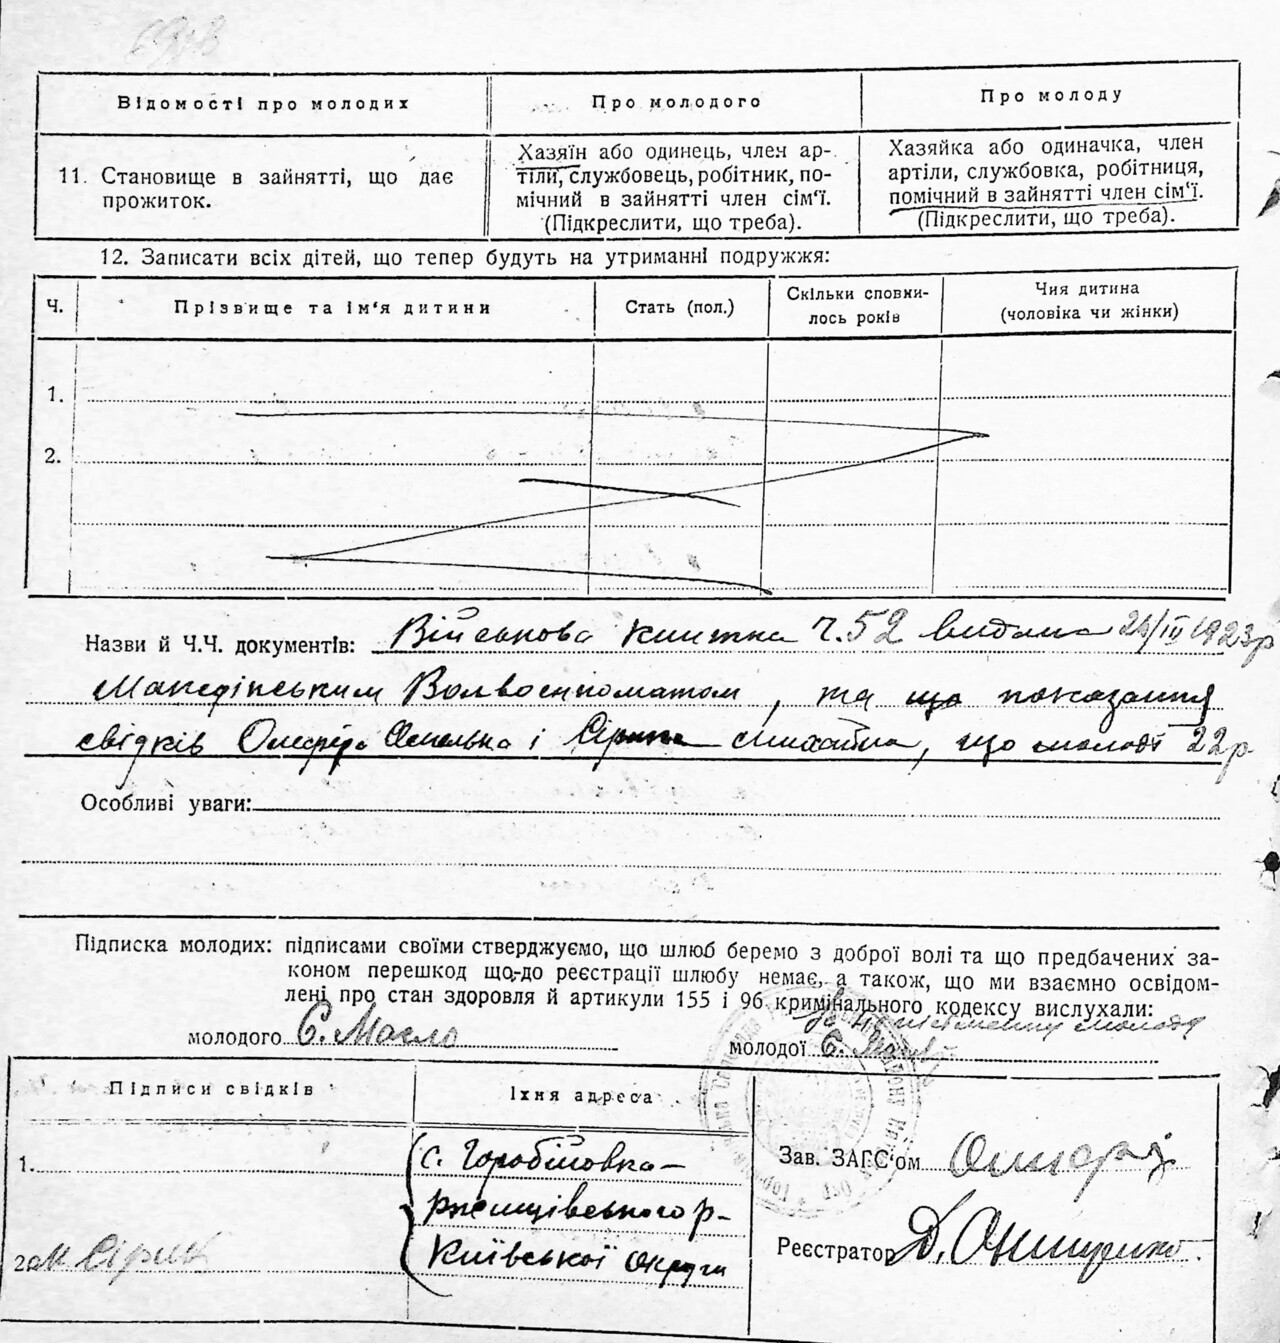 Відомості про молодих
Про молодого
Про молоду
11. Становище в зайнятті, що дає
прожиток.
Хазяїн або одинець, член ар-
тіли, службовець, робітник, по-
мічний в зайнятті член сім'ї.
(Підкреслити, що треба).
Хазяйка або одиначка, член
артіли, службовка, робітниця,
помічний в зайнятті член сім'ї.
(Підкреслити, що треба).
12. Записати всіх дітей, що тепер будуть на утриманні подружжя:
Ч.
Прізвище та ім'я дитини
Стать (пол.)
Скільки сповни-
лось років
Чия дитина
(чоловіка чи жінки)
1.
2.
Назви й Ч.Ч. документів: Військова книжка ч. 52 видана 24/III 1923р
Волвоенкоматом, та що показання
свідків і що молоді 22р
Особливі уваги:
Підписка молодих: підписами своїми стверджуємо, що шлюб беремо з доброї волі та що предбачених за-
коном перешкод що-до реєстрації шлюбу немає, а також, що ми взаємно освідом-
лені про стан здоровля й артикули 155 і 96 кримінального кодексу вислухали:
за неписьменну молоду
молодого Є. Масло
молодої Є.
Підписи свідків
Їхня адреса
1.
2.
с. Горобіївка
Ржищівського р-
Київської Округи
Зав. ЗАГС'ом
Реєстратор Д. Онищенко